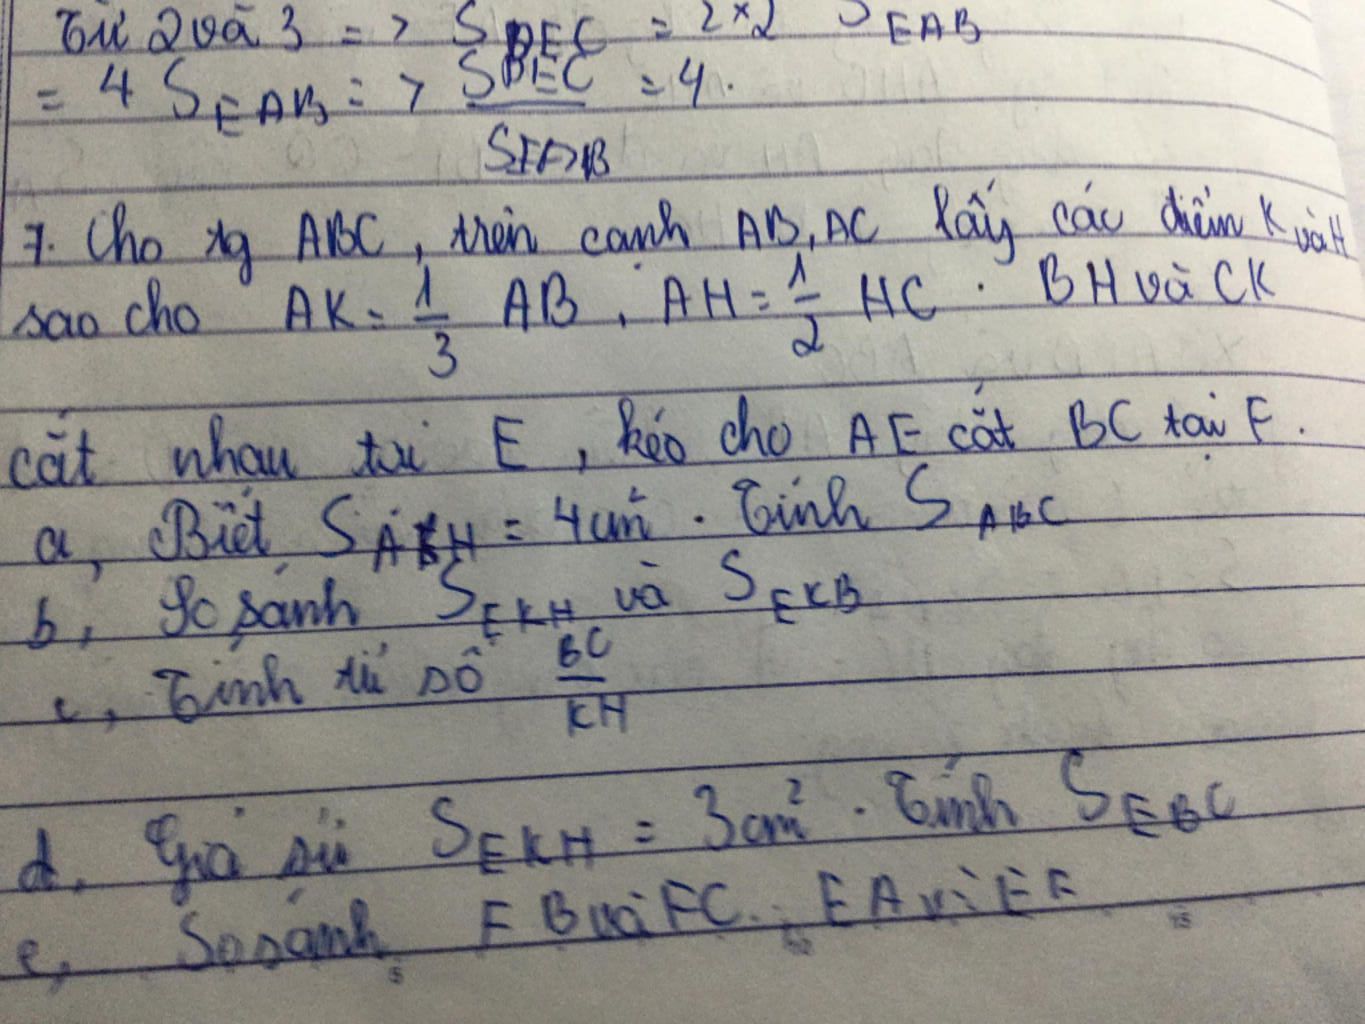 Từ 2 và 3 => S BEC = 2 x 2 S EAB
= 4 S EAB => S BEC / S EAB = 4.
7. Cho tg ABC, trên cạnh AB, AC lấy các điểm K và H
sao cho AK = 1/3 AB, AH = 1/2 HC. BH và CK
cắt nhau tại E, kéo cho AE cắt BC tại F.
a, Biết S AKH = 4cm². Tính S ABC
b, So sánh S EKH và S EKB
c, Tính tỉ số BC/KH
d, Giả sử S EKH = 3cm². Tính S EBC
e, So sánh FB và FC. EA và EF